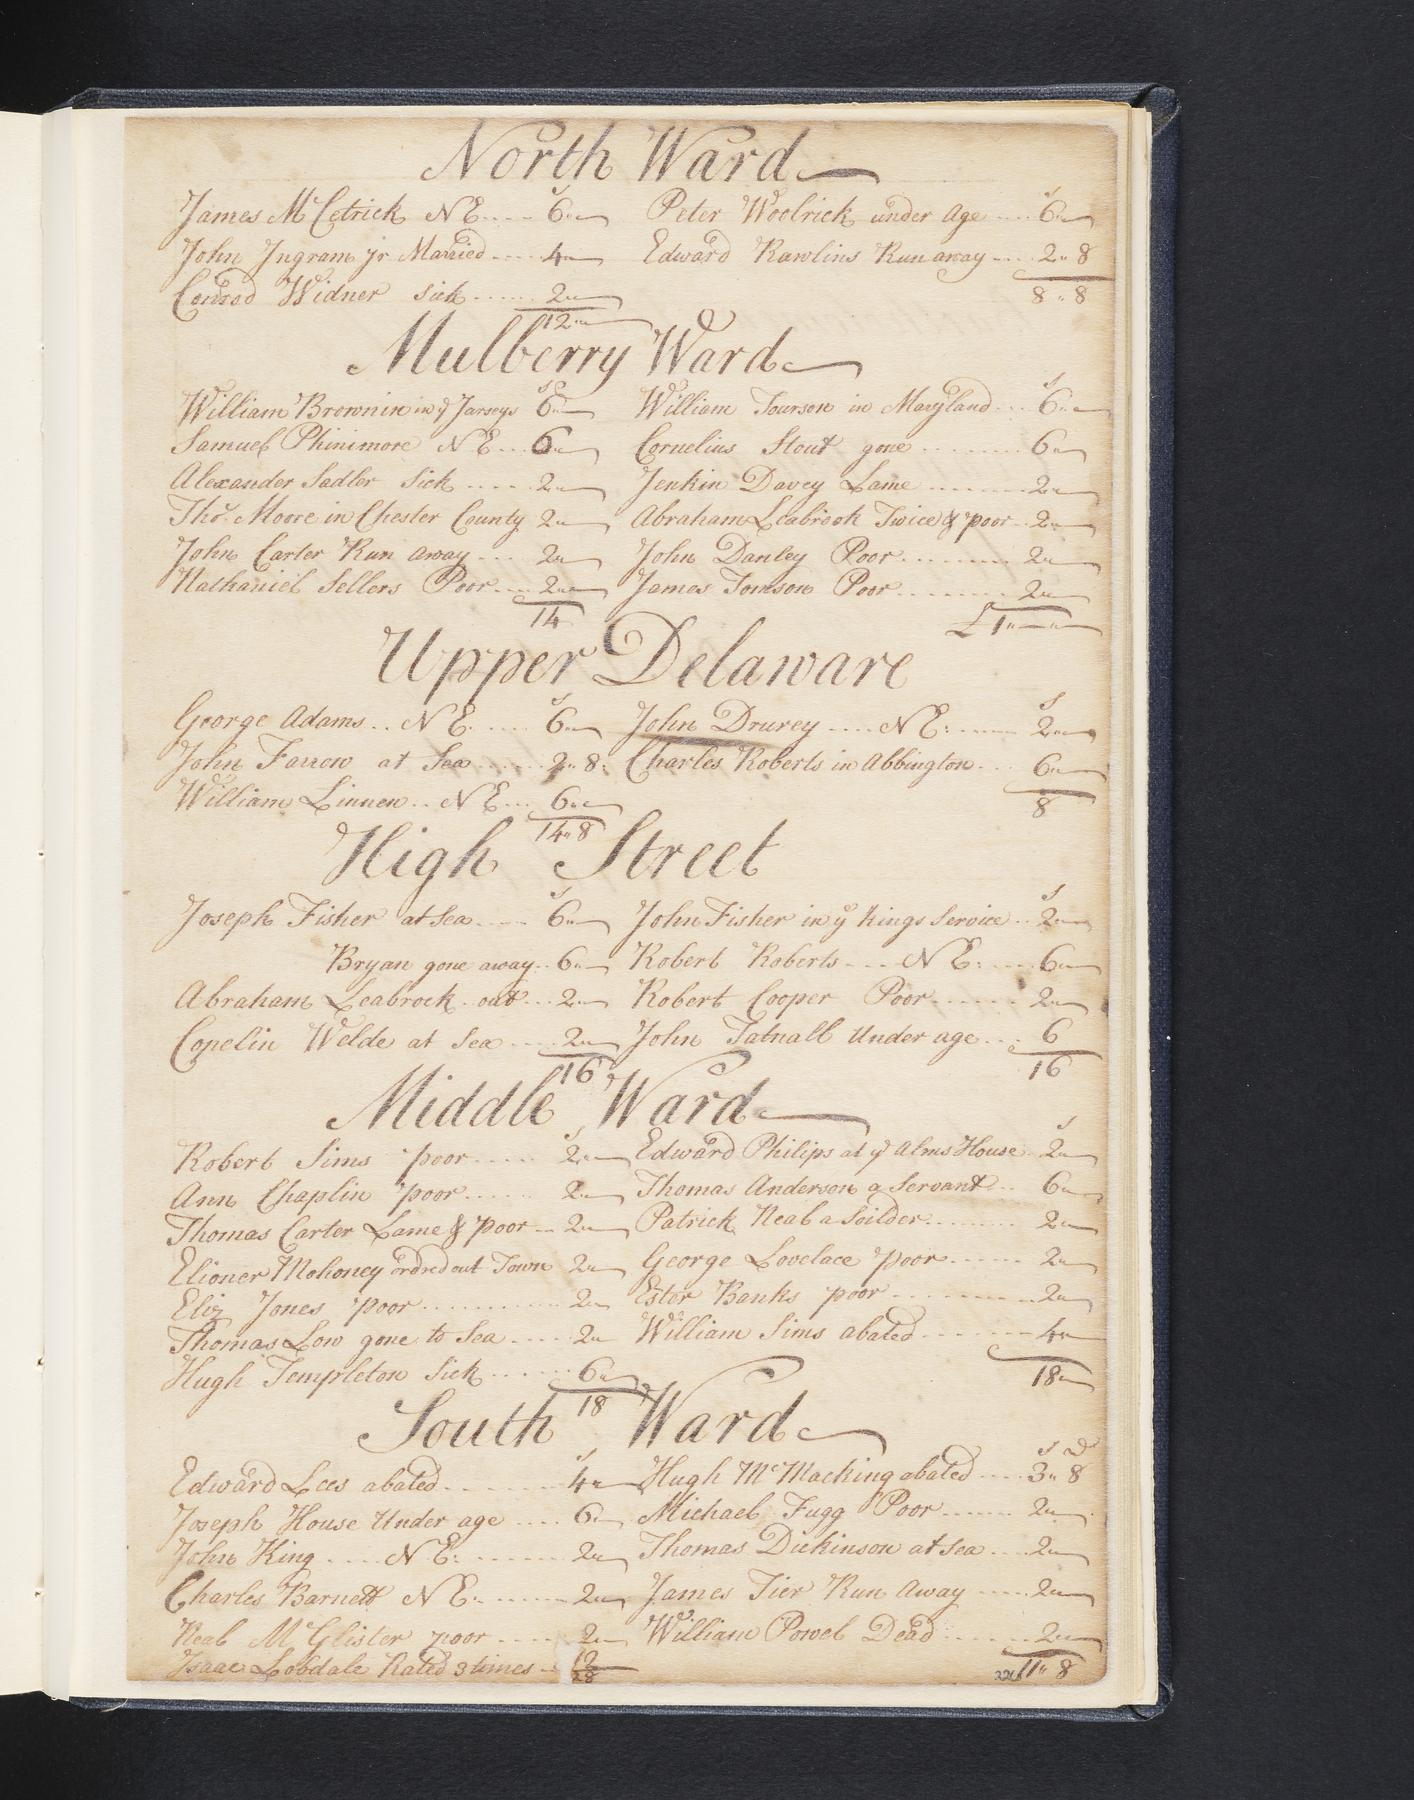 North Ward
s s
James McCetrick N E .... 6 " Peter Woolrick under Age .... 6 "
John Ingram jr Married .... 4 " Edward Rawlins Run away .... 2 " 8
Conrod Widner Sick ...... 2 " 8 " 8
12 "
Mulberry Ward
s D s
William Brownin in ye Jarseys 6 " William Tourson in Maryland ... 6 "
Samuel Phinimore N E ... 6 " Cornelius Stout gone ........ 6 "
Alexander Sadler Sick ..... 2 " Jenkin Davey Lame ........ 2 "
Thos. Moore in Chester County 2 " Abraham Leabrook Twice & poor .. 2 "
John Carter Run away .... 2 " John Danley Poor ......... 2 "
Nathaniel Sellers Poor .... 2 " James Tomson Poor ......... 2 "
14 £ 1 " "
Upper Delaware
s s
George Adams .. N E. ..... 6 " John Drurey .... N E: ..... 2 "
John Farrow at Sea ...... 2 " 8 : Charles Roberts in Abbington ... 6 "
William Linnen .. N E ... 6 " 8
14 " 8
High Street
s s
Joseph Fisher at Sea .... 6 " John Fisher in ye Kings Service .. 2 "
Bryan gone away .. 6 " Robert Roberts .... N E: .... 6 "
Abraham Leabrock . out ... 2 " Robert Cooper Poor ...... 2 "
Copelin Welde at Sea .... 2 " John Tatnall Under age ... 6
16 16
Middle Ward
s s
Robert Sims poor ..... 2 " Edward Philips at ye Alms House . 2 "
Ann Chaplin poor ...... 2 " Thomas Anderson a Servant ... 6 "
Thomas Carter Lame & poor .. 2 " Patrick Neal a Soilder ........ 2 "
Elioner Mohoney ordred out Town 2 " George Lovelace poor ...... 2 "
Eliz Jones poor ........... 2 " Ester Banks poor .......... 2 "
Thomas Low gone to Sea ..... 2 " William Sims abated ....... 4 "
Hugh Templeton Sick ...... 6 " 18 "
18
South Ward
s s D
Edward Lees abated ......... 4 " Hugh McMacking abated .... 3 " 8
Joseph House Under age .... 6 " Michael Fugg Poor ....... 2 "
John King .... N E: ........ 2 " Thomas Dickinson at Sea .... 2 "
Charles Barnett N E. ....... 2 " James Tier Run Away ..... 2 "
Neal McGlister poor ..... 2 " William Powel Dead ...... 2 "
Isaac Lobdale Rated 3 times .. 12 11 " 8
28